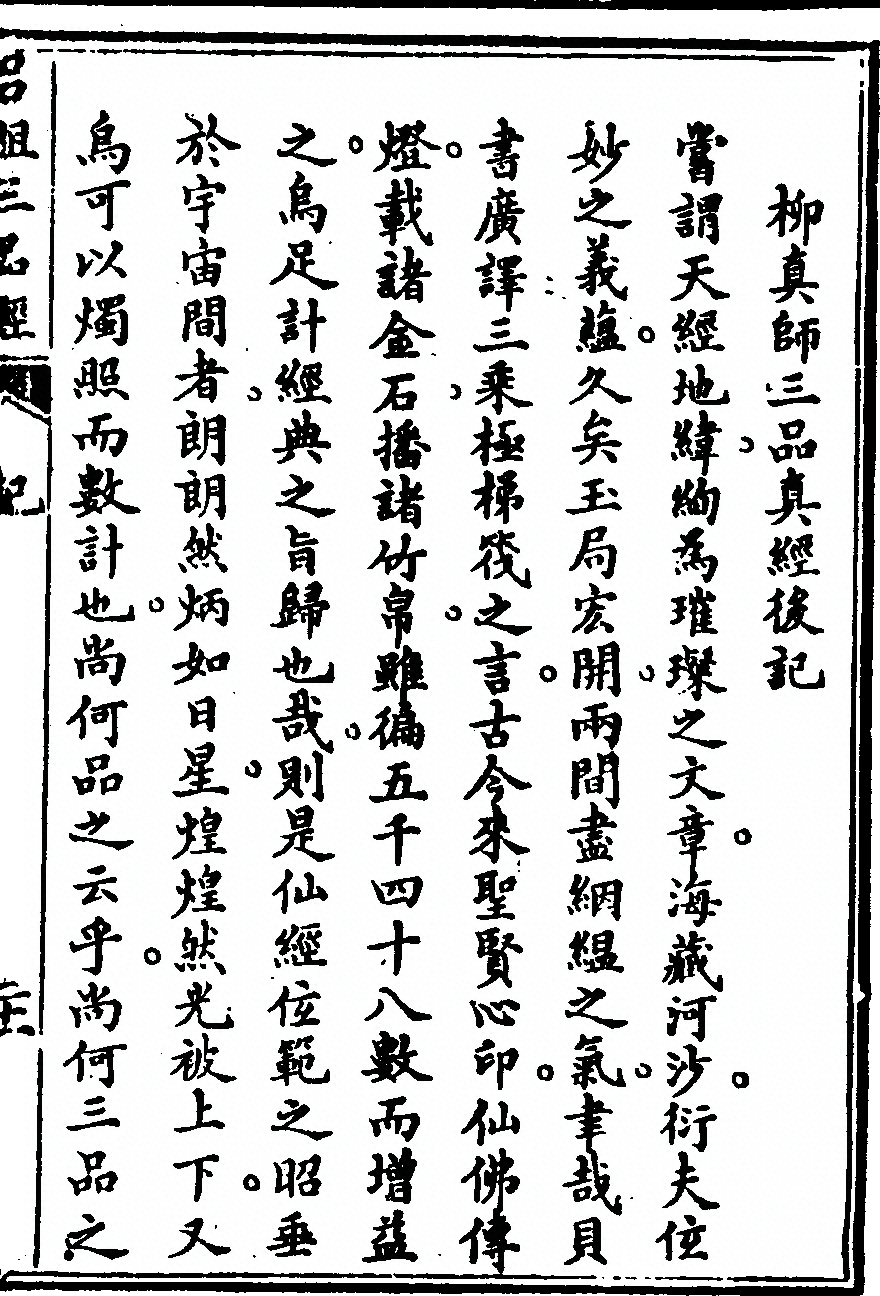 柳真師三品真經後記
嘗謂天經地緯絢為璀璨之文章海藏河沙衍夫位
妙之義蘊久矣玉局宏開兩間盡絪縕之氣聿哉貝
書廣譯三乘極梯筏之言古今來聖賢心印仙佛傳
燈載諸金石播諸竹帛雖徧五千四十八數而增益
之烏足計經典之旨歸也哉則是仙經位範之昭垂
於宇宙間者朗朗然炳如日星煌煌然光被上下又
烏可以燭照而數計也尚何品之云乎尚何三品之
呂祖三品經
後記